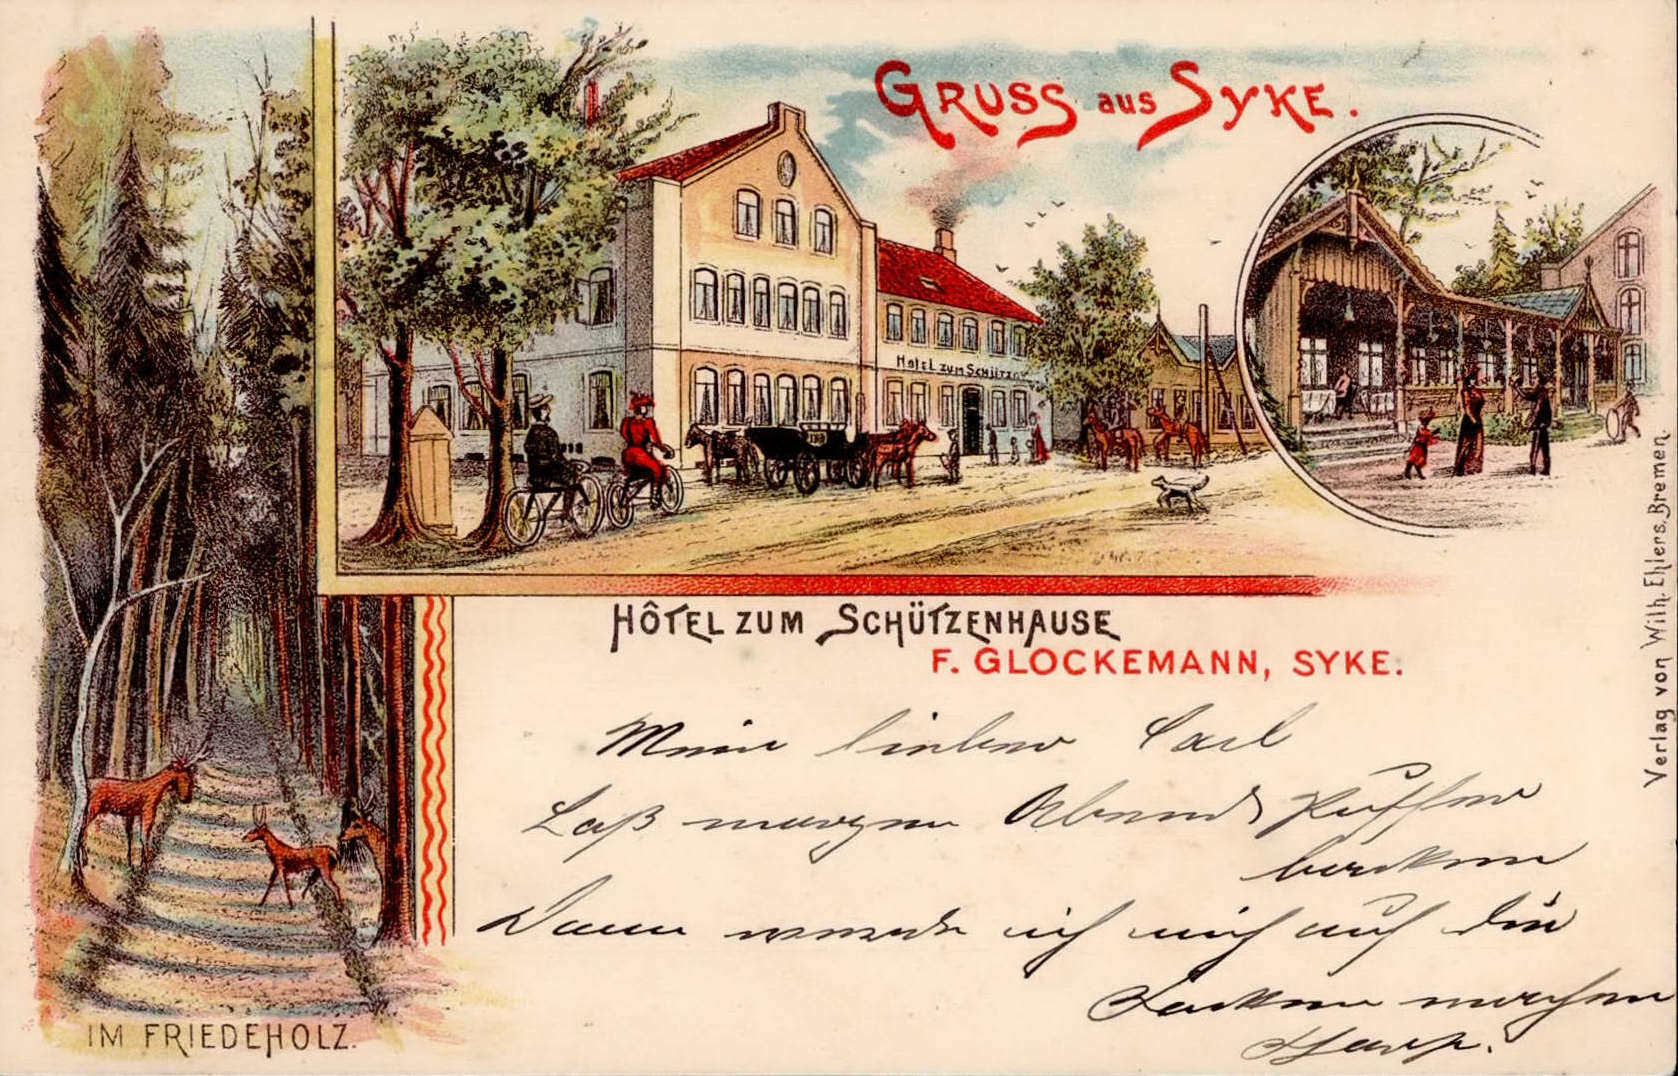 GRUSS aus SYKE.
Hotel zum Schützen
HÔTEL ZUM SCHÜTZENHAUSE
F. GLOCKEMANN, SYKE.
Mein lieber Carl
Laß morgen Abend
Dann werde ich mich auf die
machen
IM FRIEDEHOLZ.
Verlag von Wilh. Ehlers. Bremen.